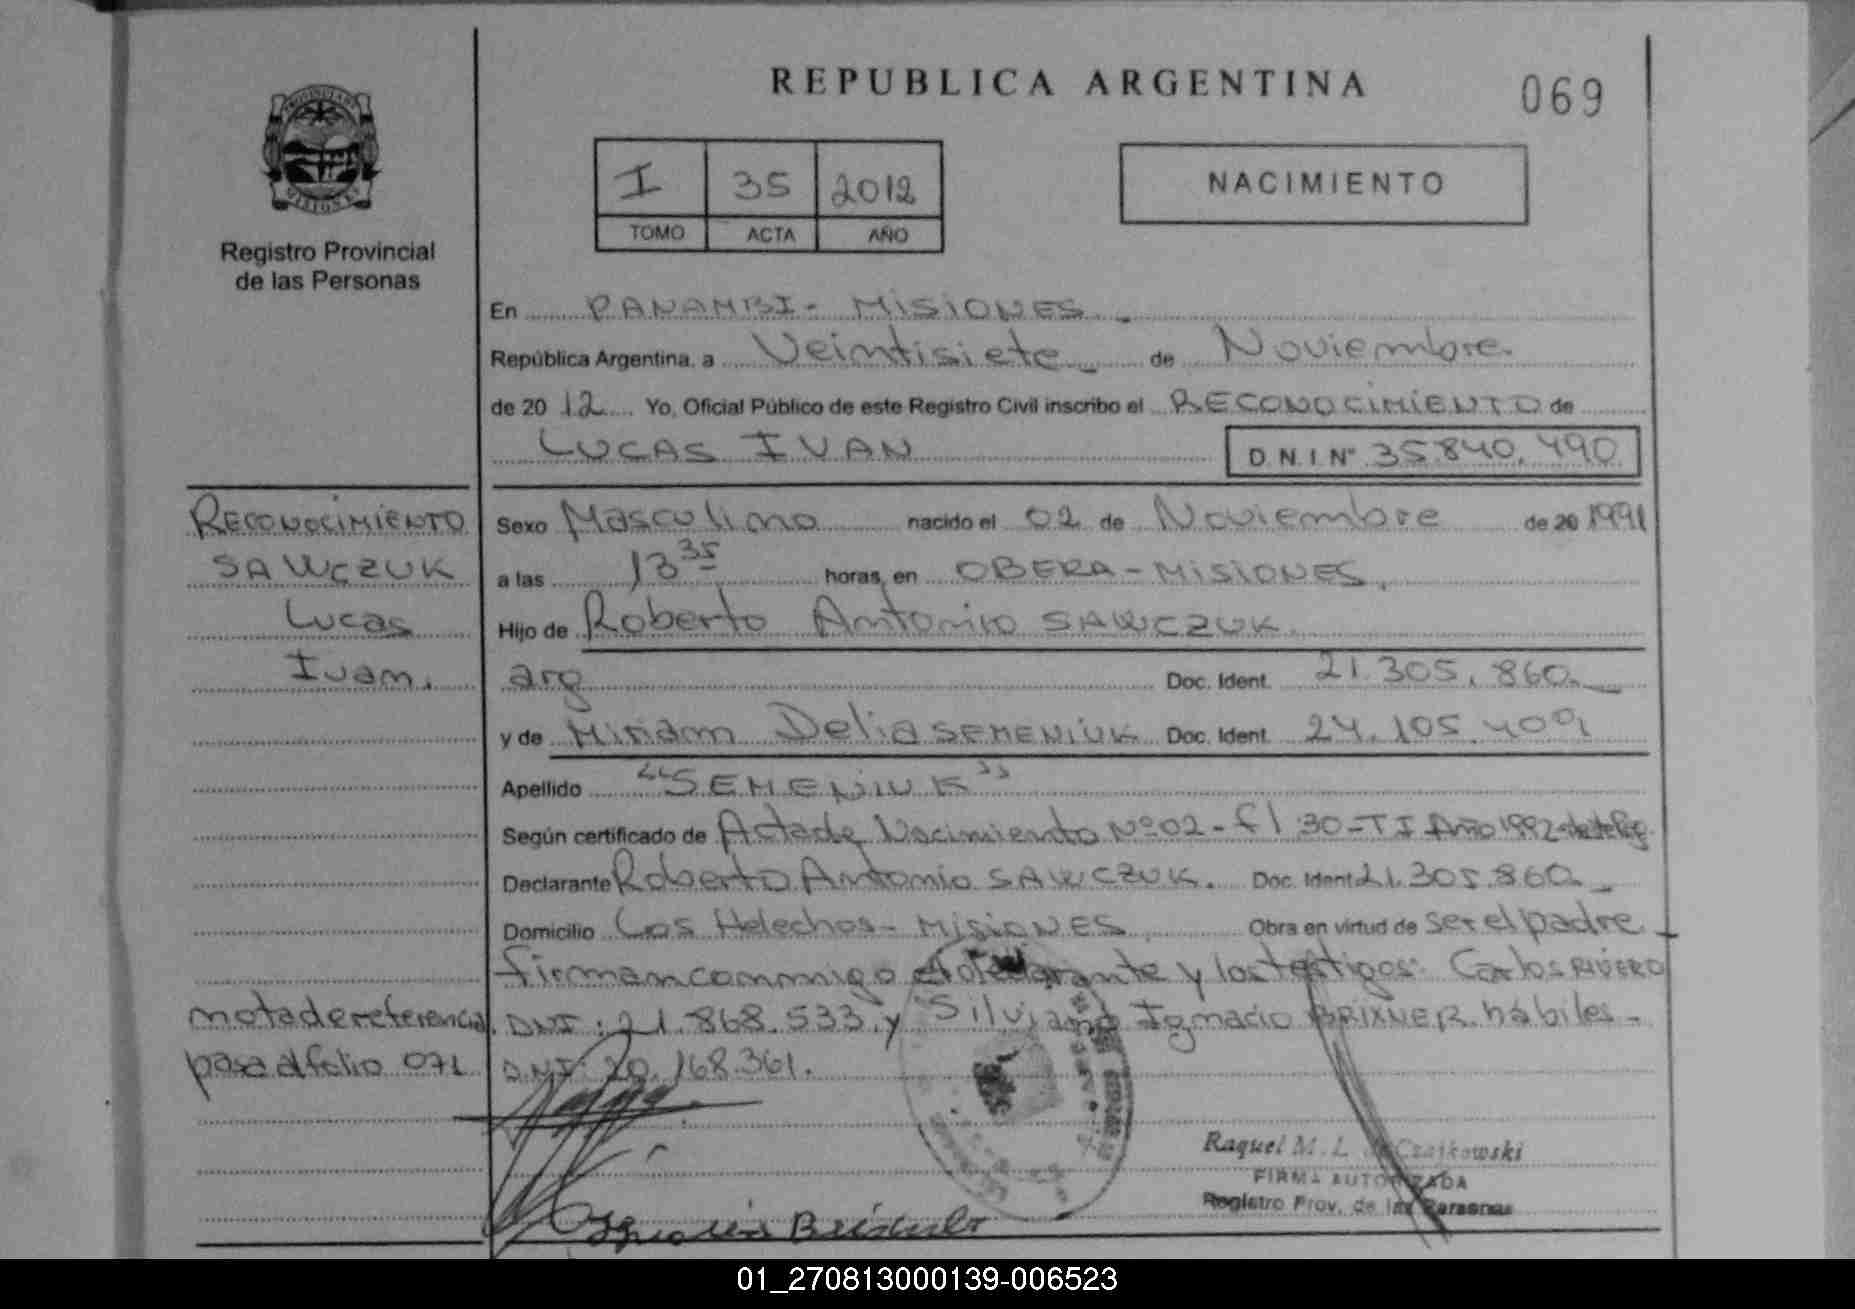 REPUBLICA ARGENTINA
069
PROVINCIA DE
MISIONES
Registro Provincial
de las Personas
I 35 2012
TOMO ACTA AÑO
NACIMIENTO
En PANAMBI - MISIONES
República Argentina, a Veintisiete de Noviembre
de 2012 Yo, Oficial Público de este Registro Civil inscribo el RECONOCIMIENTO de
LUCAS IVAN D.N.I Nº 35.840.490
RECONOCIMIENTO
SAWCZUK
Lucas
Ivan.
Sexo Masculino nacido el 02 de Noviembre de 20 1991
a las 13 35 horas, en OBERA - MISIONES.
Hijo de Roberto Antonio SAWCZUK.
arg Doc. Ident. 21.305.860.
y de Miriam Delia SEMENIUK Doc. Ident. 24.105.409
Apellido "SEMENIUK"
Según certificado de Acta de Nacimiento Nº 02 - fl 30 - T I Año 1992
Declarante Roberto Antonio SAWCZUK. Doc. Ident 21.305.860.
Domicilio Los Helechos - MISIONES. Obra en virtud de ser el padre
firman conmigo el declarante y los testigos: Carlos RIVERO
DNI: 21.868.533 y Silviano Ignacio BRIXNER hábiles -
DNI: 20.168.361.
nota de referencia
pasa al folio 071
Raquel M. L. de Czajkowski
FIRMA AUTORIZADA
Registro Prov. de las Personas
01_270813000139-006523